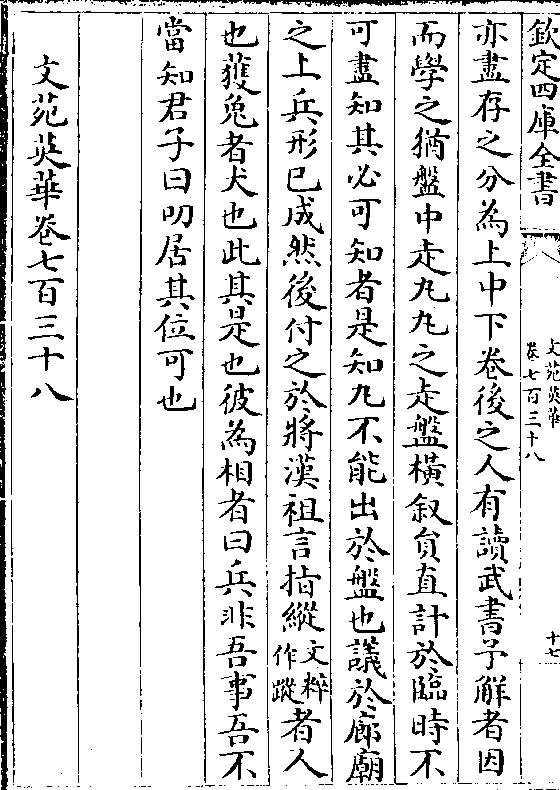 欽定四庫全書
文苑英華
卷七百三十八
十七
亦盡存之分為上中下卷後之人有讀武書予解者因
而學之猶盤中走丸丸之走盤橫叙貟直計於臨時不
可盡知其必可知者是知丸不能出於盤也議於廊廟
之上兵形已成然後付之於將漢祖言指縱文粹作蹤者人
也獲兔者犬也此其是也彼為相者曰兵非吾事吾不
當知君子曰叨居其位可也
文苑英華卷七百三十八